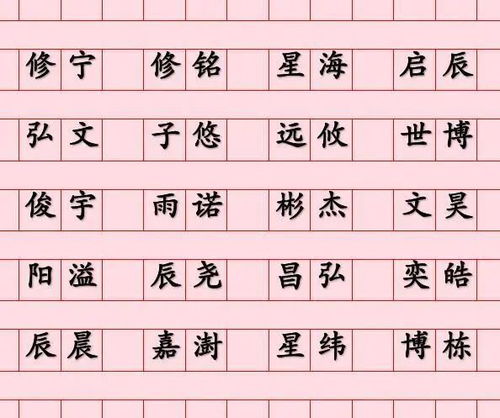 修宁 修铭 星海 启辰
弘文 子悠 远攸 世博
俊宇 雨诺 彬杰 文昊
阳溢 辰尧 昌弘 奕皓
辰晨 嘉澍 星纬 博栋